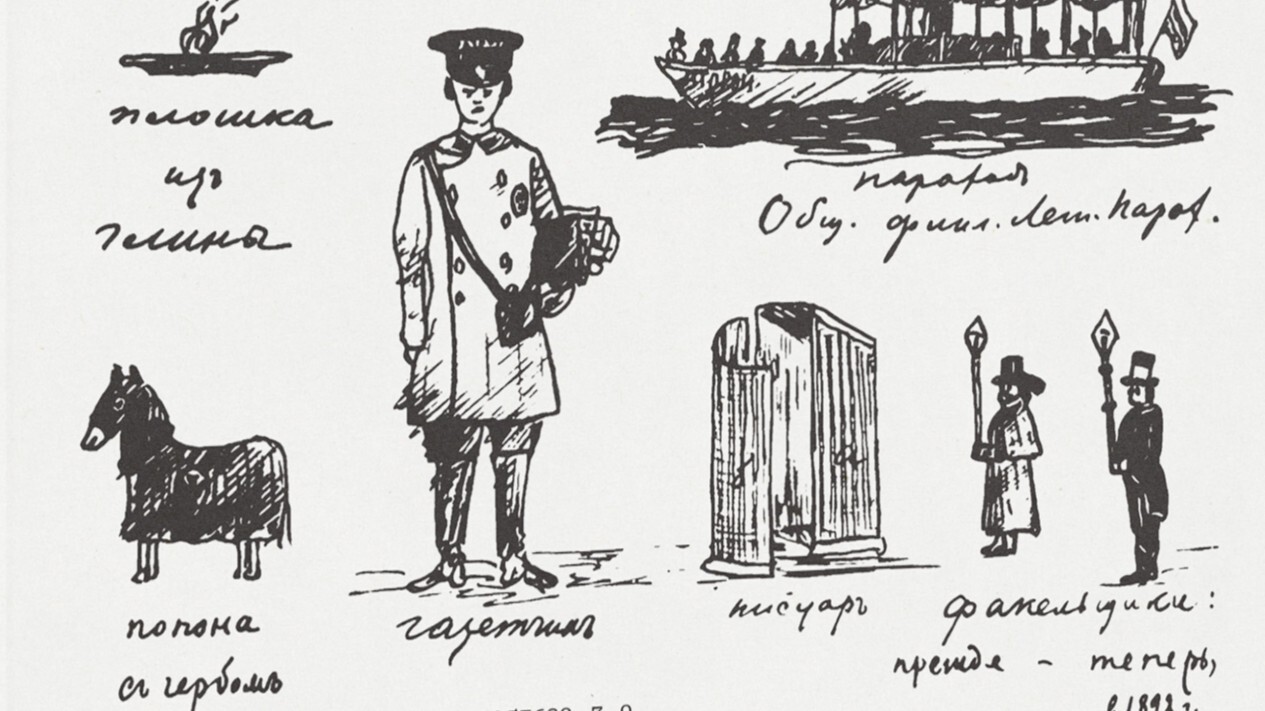 плошка
изъ
глины
пароходъ
Общ. финл. Лег. Парох.
попона
съ гербомъ
газетчикъ
писуаръ
факельщики:
прежде - теперь,
с 1892 г.